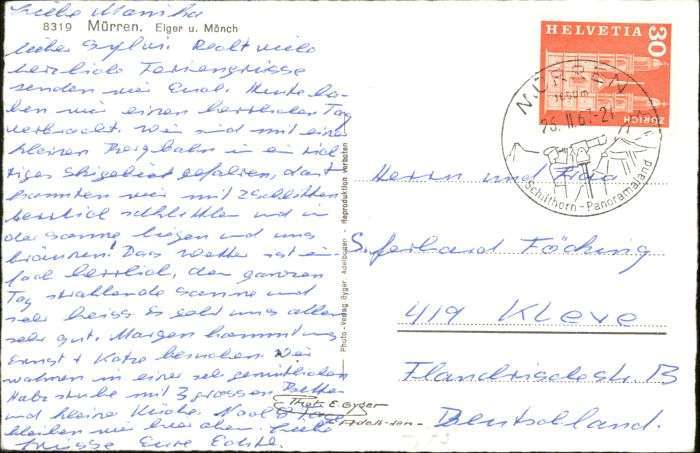 Liebe Monika
8319 Mürren. Eiger u. Mönch
lieber Sylvi. Recht viele
herzliche Feriengrüsse
senden wir Euch. Heute ha-
ben wir einen herrlichen Tag
verbracht. Wir sind mit einer
kleinen Bergbahn in ein rich
tiges Skigebiet gefahren, dort
konnten wir mit Schlitten
herrlich schlitteln und in
der Sonne liegen und uns
bräunen. Das Wetter ist ein-
fach herrlich, den ganzen
Tag strahlende Sonne und
sehr heiss. Es geht uns allen
sehr gut. Morgen kommt uns
Ernst + besuchen. Wir
wohnen in einer sehr gemütlichen
Holzstube mit 3 grossen Betten
und kleine Küche. Noch 8 Tage
bleiben wir hier oben. Liebe
Grüsse Eure
Photo-Verlag Gyger, Adelboden - Reproduktion verboten
Photo E. Gyger
Adelboden
HELVETIA
30
ZÜRICH
MÜRREN
1650m
26. II. 67-21
Schilthorn - Panoramaland
Herrn und Frau
Föcking
419 Kleve
Flandrischestr. 13
Deutschland.